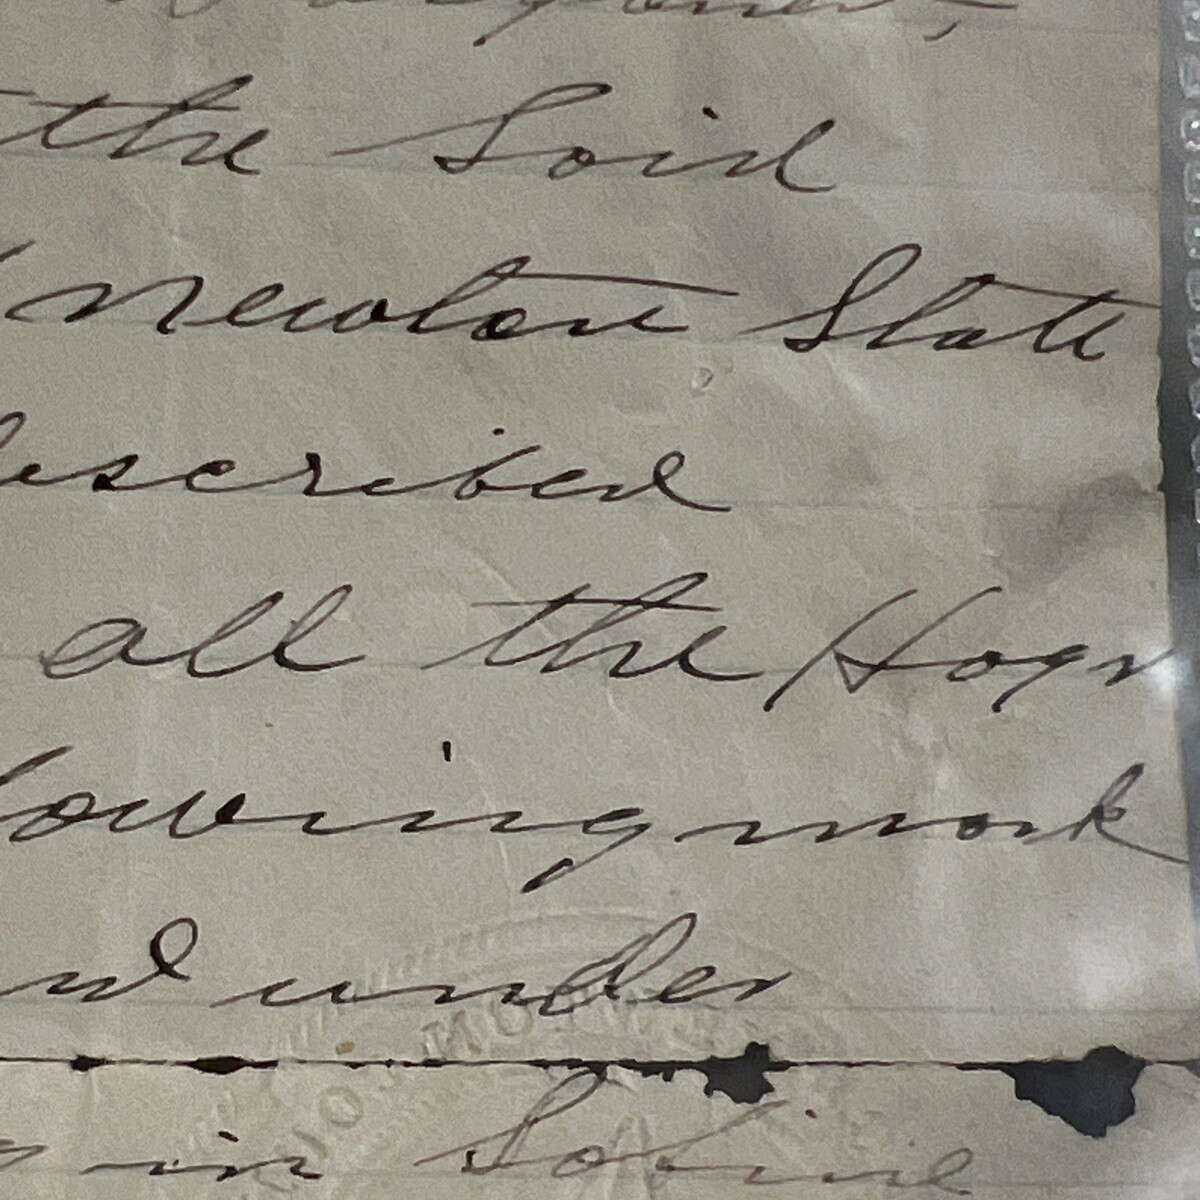 the Said
Newton State
described
all the Hogs
lowing mark
and under
in Sabine